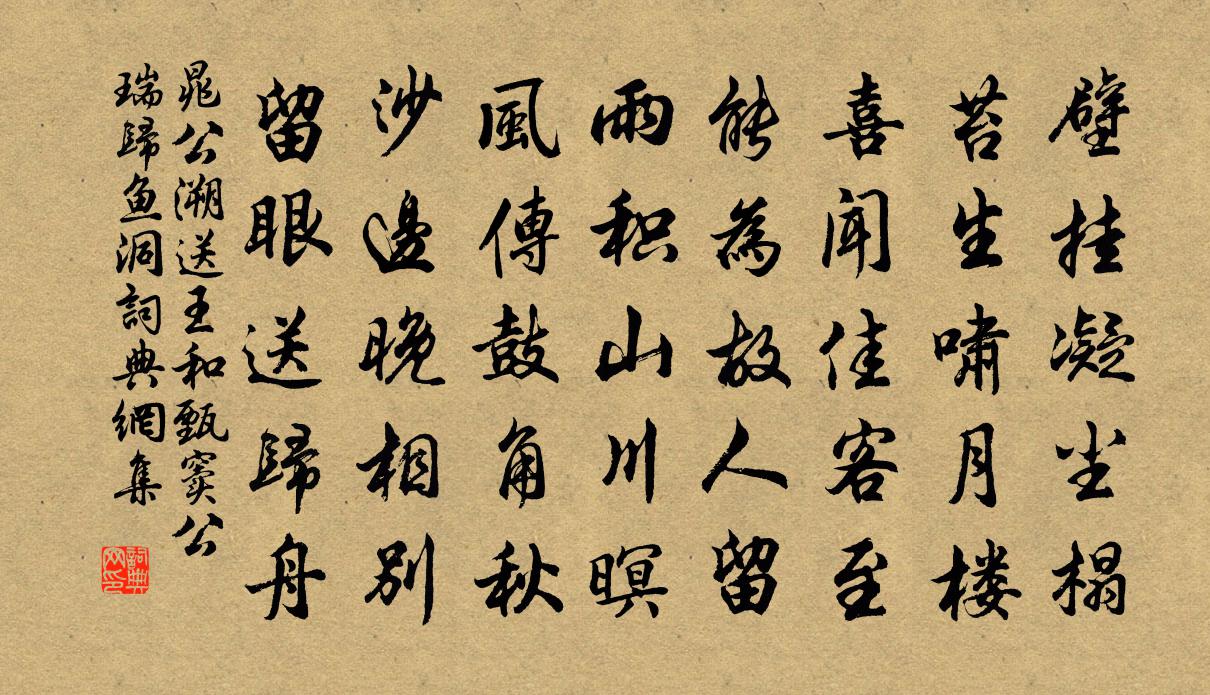 壁挂凝尘榻
苔生啸月楼
喜闻佳客至
能为故人留
雨积山川暝
風傳鼓角秋
沙邊晚相别
留眼送歸舟
晁公溯送王和甄窦公
瑞歸鱼洞詞典網集
詞典
网印